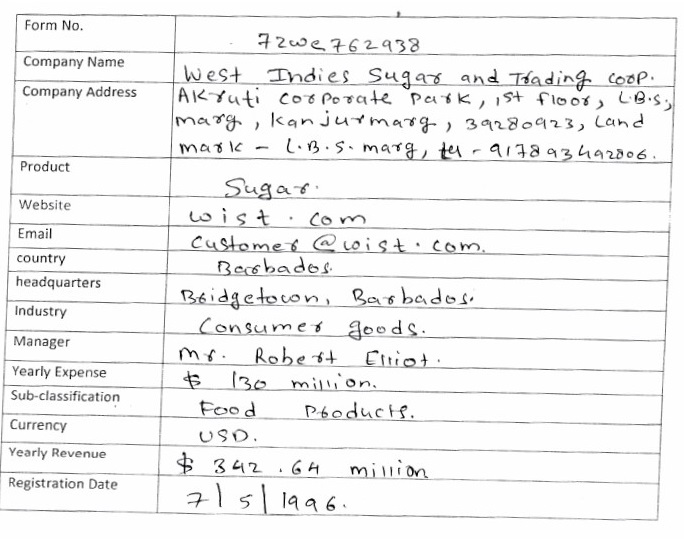 Form No. 72we762938
Company Name West Indies Sugar and Trading coop.
Company Address Akruti corporate park, 1st floor, L.B.S,
marg, kanjurmarg, 39280923, Land
mark - L.B.S. marg, tel - 917893492806.
Product Sugar.
Website wist.com
Email Customer@wist.com.
country Barbados.
headquarters Bridgetown, Barbados.
Industry Consumer goods.
Manager Mr. Robert Elliot.
Yearly Expense $ 130 million.
Sub-classification Food Products.
Currency USD.
Yearly Revenue $ 342.64 million
Registration Date 7/5/1996.